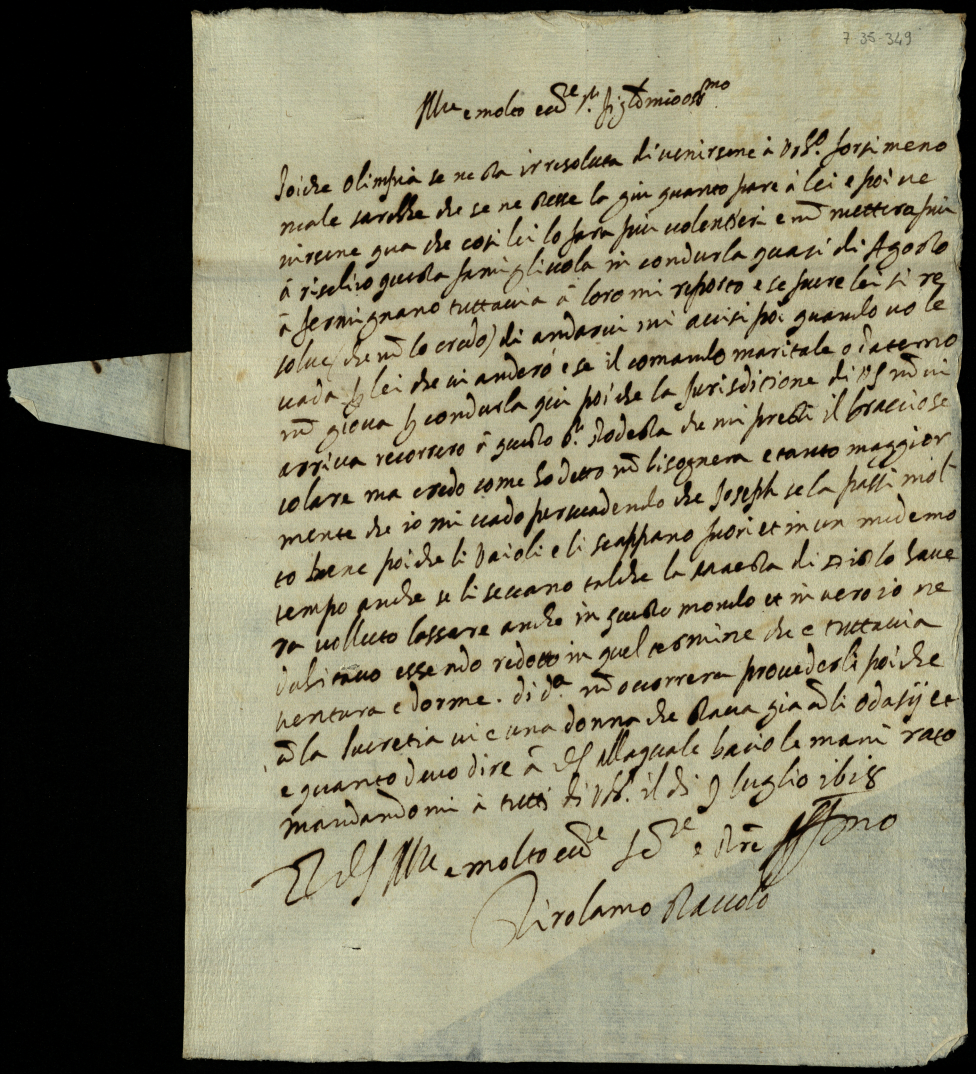 7-35-349
Ill.re e molto ecc.te S.r Sig.r mio oss.mo
Poiche Olimpia se ne sta irresoluta di venirsene à forsi meno
male sarebbe che se ne stesse la giu quanto pare à lei e poi ve
nirsene qua che cosi lei lo fara piu volentieri e nõ mettera piu
à risico questa famigliuola in condurla quasi di Agosto
à fermignano tuttavia à loro mi riporto e se pure lei si re
solve (che nõ lo credo) di andarvi mi avisi poi quando vole
vada p lei che vi anderò e se il comando maritale o paterno
nõ giova p condurla qui poiche la Jurisdicione di VS nõ vi
arriva recorrero à questo S.r Podesta che mi presti il braccio se
colare ma credo come ho detto nõ bisognera e tanto maggior
mente che io mi vado persuadendo che Joseph se la passi mol
to bene poiche li vaioli e li scappano fuori et in un medemo
tempo anche se li seccano talche la Maesta di Dio lo have
ra volluto lassare anche in questo mondo et in vero io ne
dubitavo essendo redotto in quel termine che e tuttavia
ventura e dorme. di d.a nõ occorrera provederli poiche
cõ la Lucretia vi e una donna che stava gia cõ li Odasij et
e quanto devo dire à VS alla quale bacio le mani raco
mandandomi à tutti di il di 9 luglio 1618
Di VS Ill.re e molto ecc.te Se.re e Aff.mo
Girolamo Staccolo